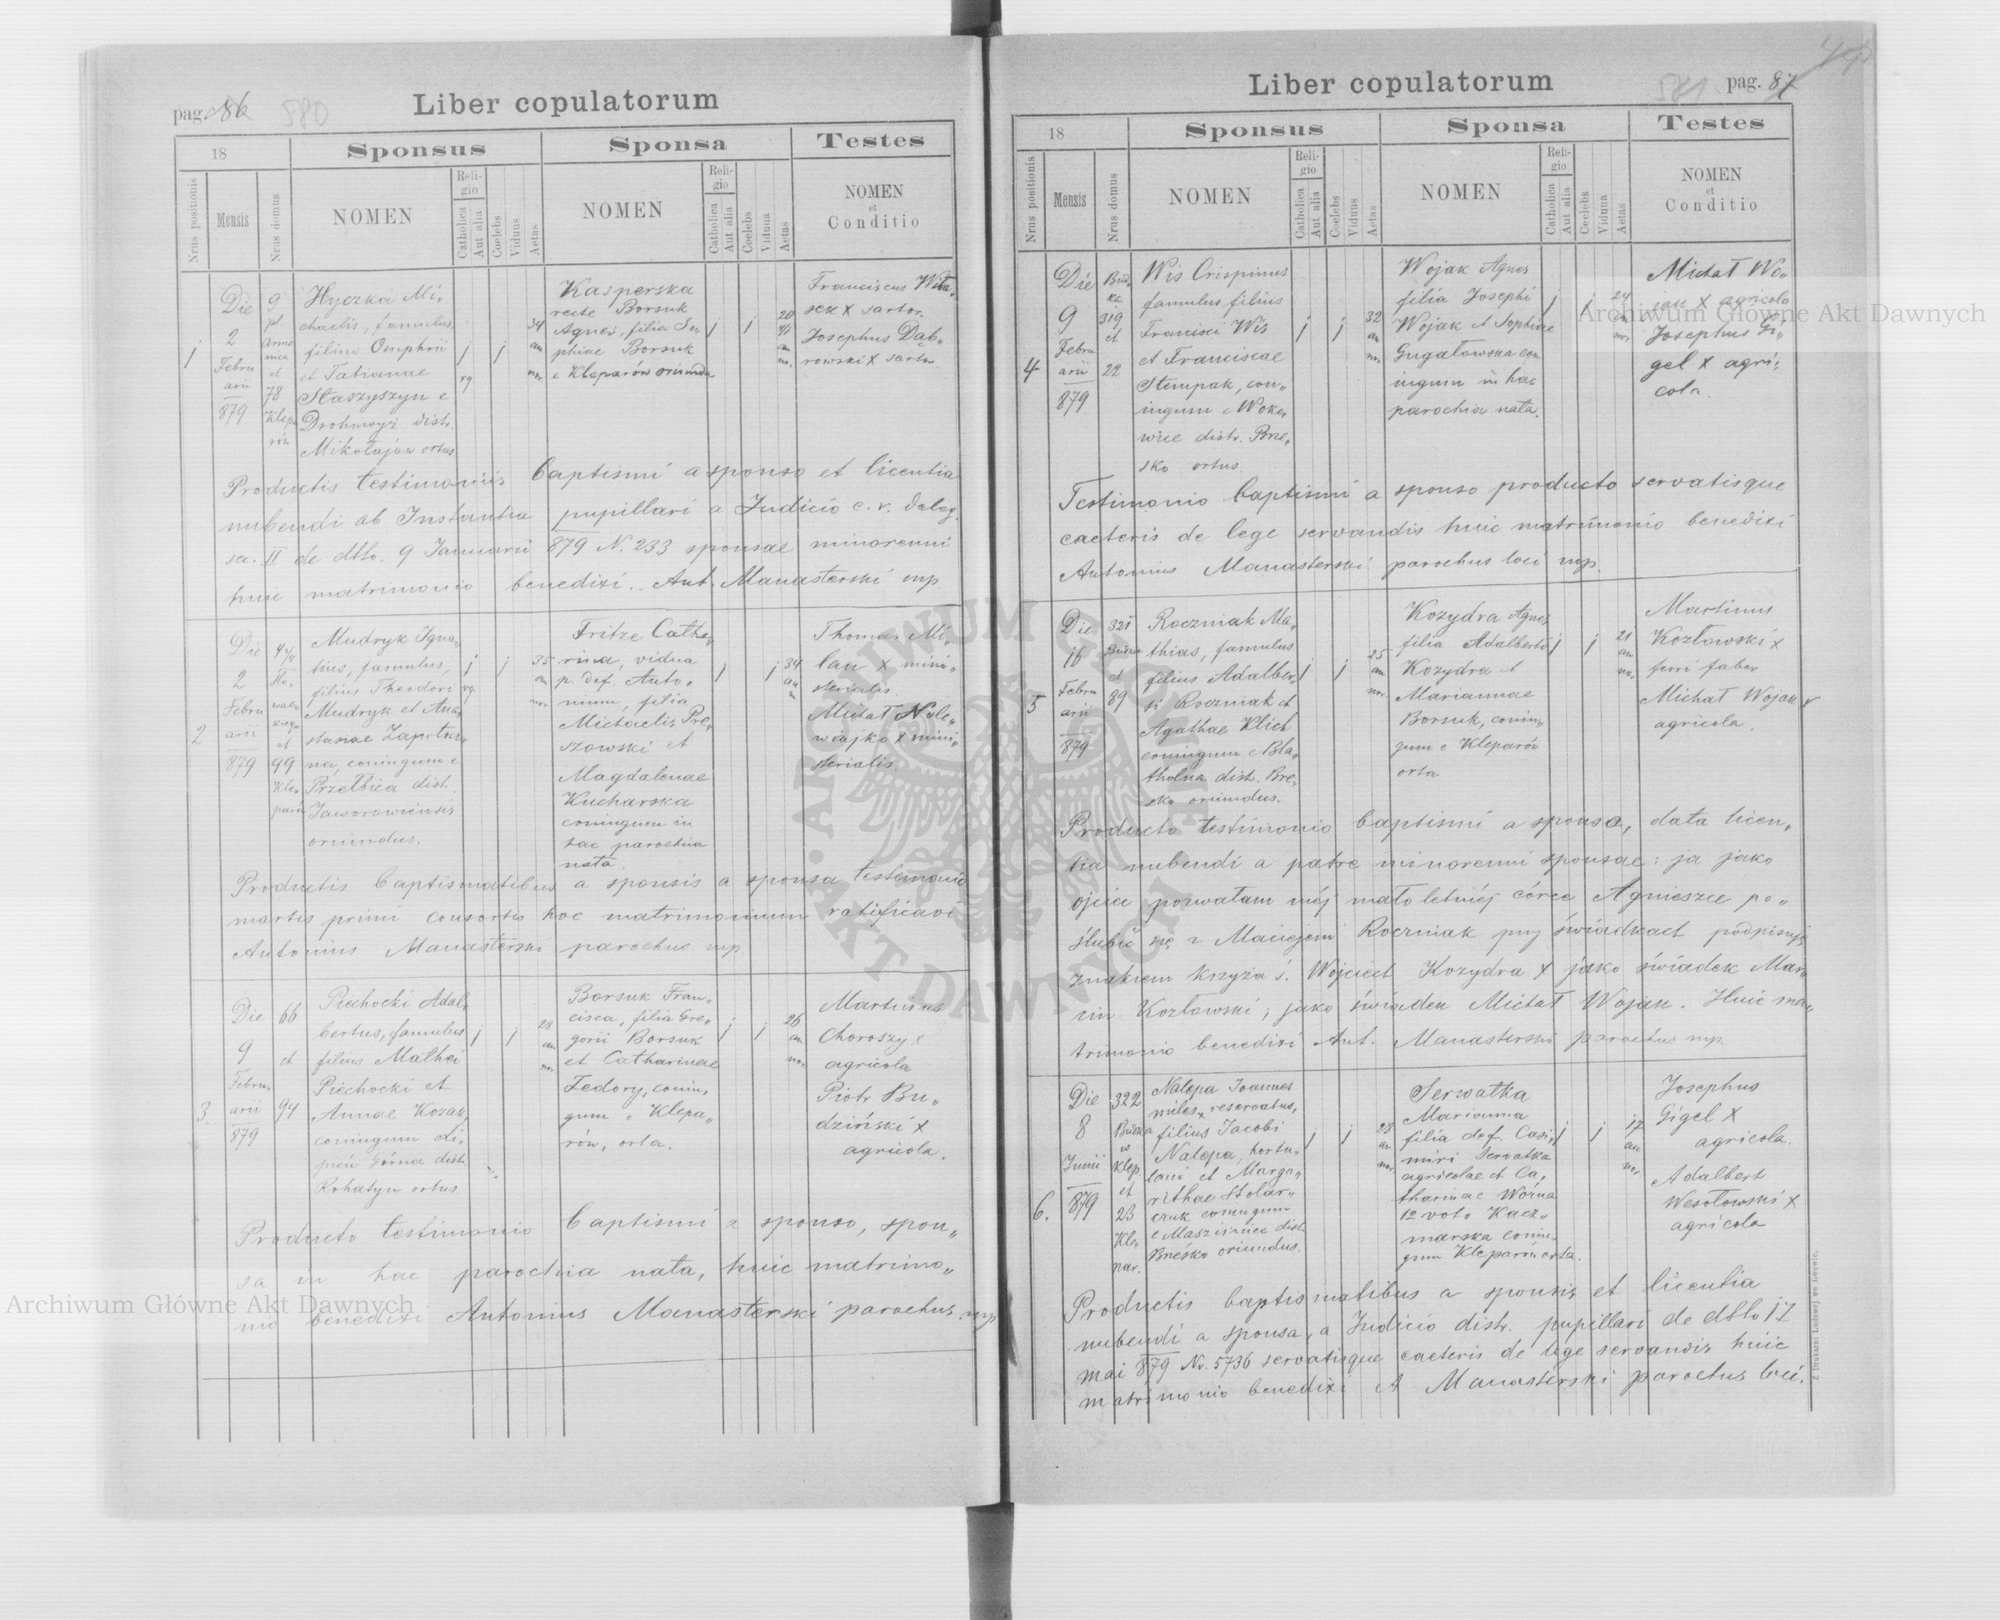 pag. 86 580
Liber copulatorum
18
Sponsus
Sponsa
Testes
Nrus positionis
Mensis
Nrus domus
NOMEN
Religio
Catholica
Aut alia
Coelebs
Viduus
Aetas
NOMEN
Religio
Catholica
Aut alia
Coelebs
Vidua
Aetas
NOMEN
et
Conditio
1
Die
2
Febru
arii
879
9
et
78
Klepa
rów
Hyczka Mi„
chaelis, famulus,
filius Omphrii
et Tatianae
Staszyszyn e
Drohowyż distr.
Mikołajów ortus
34
an
nor.
Kasperska
recte Borsuk
Agnes, filia So„
phiae Borsuk
e Kleparów oriunda
20
an
nor.
Franciscus Wita„
sek X sartor.
Josephus Dąb„
rowski X sartor
Productis testimoniis baptismi a sponso et licentia
nubendi ab Instantia pupillari a Judicio c. r. deleg.
sec. II de dtto. 9 Januarii 879 N. 233 sponsae minorenni
huic matrimonio benedixi.. Ant. Manasterski mp.
2
Die
2
Febru
arii
879
et
99
Kle„
parów
Mudryk Igna„
tius, famulus,
filius Theodori
Mudryk et Ana„
stasiae Zapotocz„
na, coniugum e
Przełbica dist.
Jaworowiensis
oriundus.
35
an
nor.
Fritze Catha„
rina, vidua
p. def. Anto„
nium, filia
Michaelis Pre„
szowski et
Magdalenae
Kucharska
coniugum in
hac parochia
nata.
34
an
n
Thomas Mi„
lan X mini„
sterialis.
Michał Nale„
wajko X mini„
sterialis
Productis baptismatibus a sponsis a sponsa testimonio
mortis primi consortis hoc matrimonium ratificavi
Antonius Manasterski parochus mp
3
Die
9
Febru„
arii
879
66
et
94
Piechocki Adal„
bertus, famulus
filius Mathei
Piechocki et
Annae Kozak,
coniugum Li„
pica Górna dist.
Rohatyn ortus
28
an
nor.
Borsuk Fran„
cisca, filia Gre„
gorii Borsuk
et Catharinae
Fedory, coniu„
gum e Klepa„
rów, orta.
26
an
nor.
Martinus
Choroszy X
agricola
Piotr Bu„
dziński X
agricola.
Producto testimonio baptismi a sponso, spon„
sa in hac parochia nata, huic matrimo„
nio benedixi Antonius Manasterski parochus mp
Archiwum Główne Akt Dawnych
pag. 87
581
Liber copulatorum
18
Sponsus
Sponsa
Testes
Nrus positionis
Mensis
Nrus domus
NOMEN
Religio
Catholica
Aut alia
Coelebs
Viduus
Aetas
NOMEN
Religio
Catholica
Aut alia
Coelebs
Vidua
Aetas
NOMEN
et
Conditio
4
Die
9
Febru
arii
879
Bud
ka
319
et
22
Wis Crispinus
famulus filius
Francisci Wis
et Franciscae
Stempak, con„
iugum e Woko
wice distr. Brze„
sko ortus.
32
an
nor.
Wojak Agnes
filia Josephi
Wojak et Sophiae
Gugałowska con
iugum in hac
parochia nata.
24
an
nor.
Michał Wo„
jak X agricola
Josephus Gi„
gel X agri„
cola.
Archiwum Główne Akt Dawnych
Testimonio baptismi a sponso producto servatisque
caeteris de lege servandis huic matrimonio benedixi
Antonius Manasterski parochus loci mp.
5
Die
16
Febru
arii
879
321
et
89
Roczniak Ma„
thias, famulus
filius Adalber„
ti Roczniak et
Agathae Klich
coniugum e Bia„
tholna dist. Brze„
sko oriundus.
25
an
nor.
Kozydra Agnes
filia Adalberti
Kozydra et
Mariannae
Borsuk, coniu„
gum e Kleparów
orta
21
an
nor.
Martinus
Kozłowski X
ferri faber
Michał Wojak X
agricola.
Producto testimonio baptismi a sponsa, data licen„
tia nubendi a patre minorenni sponsae: ja jako
ojciec pozwalam méj małoletniéj córce Agnieszce po„
ślubić się z Maciejem Roczniak przy świadkach podpisuję
znakiem krzyża ś. Wojciech Kozydra X jako świadek Mar„
cin Kozłowski; jako świadek Michał Wojak. Huic ma„
trimonio benedixi Ant. Manasterski parochus mp.
6.
Die
8
Junii
879
322
Budka
w
Klep.
et
23
Kle„
par.
Nalepa Joannes
miles reservatus,
filius Jacobi
Nalepa, hortu„
lani et Marga„
rithae Stolar„
czuk coniugum
e Maszienice dist.
Bresko oriundus.
28
an
nor.
Serwatka
Marianna
filia def. Casi„
miri Serwatka
agricolae et Ca„
tharinae Woźna
1º voto Kacz„
marska coniu„
gum Kleparów orta.
17
an
nor.
Josephus
Gigel X
agricola.
Adalbert
Wesołowski X
agricola
Productis baptismatibus a sponsis et licentia
nubendi a sponsa, a Judicio distr. pupillari de dtto 17
mai 879 No. 5736 servatisque caeteris de lege servandis huic
matrimonio benedixi A Manasterski parochus loci.
Z Drukarni Ludowej we Lwowie.
ARCHIWUM GŁÓWNE AKT DAWNYCH